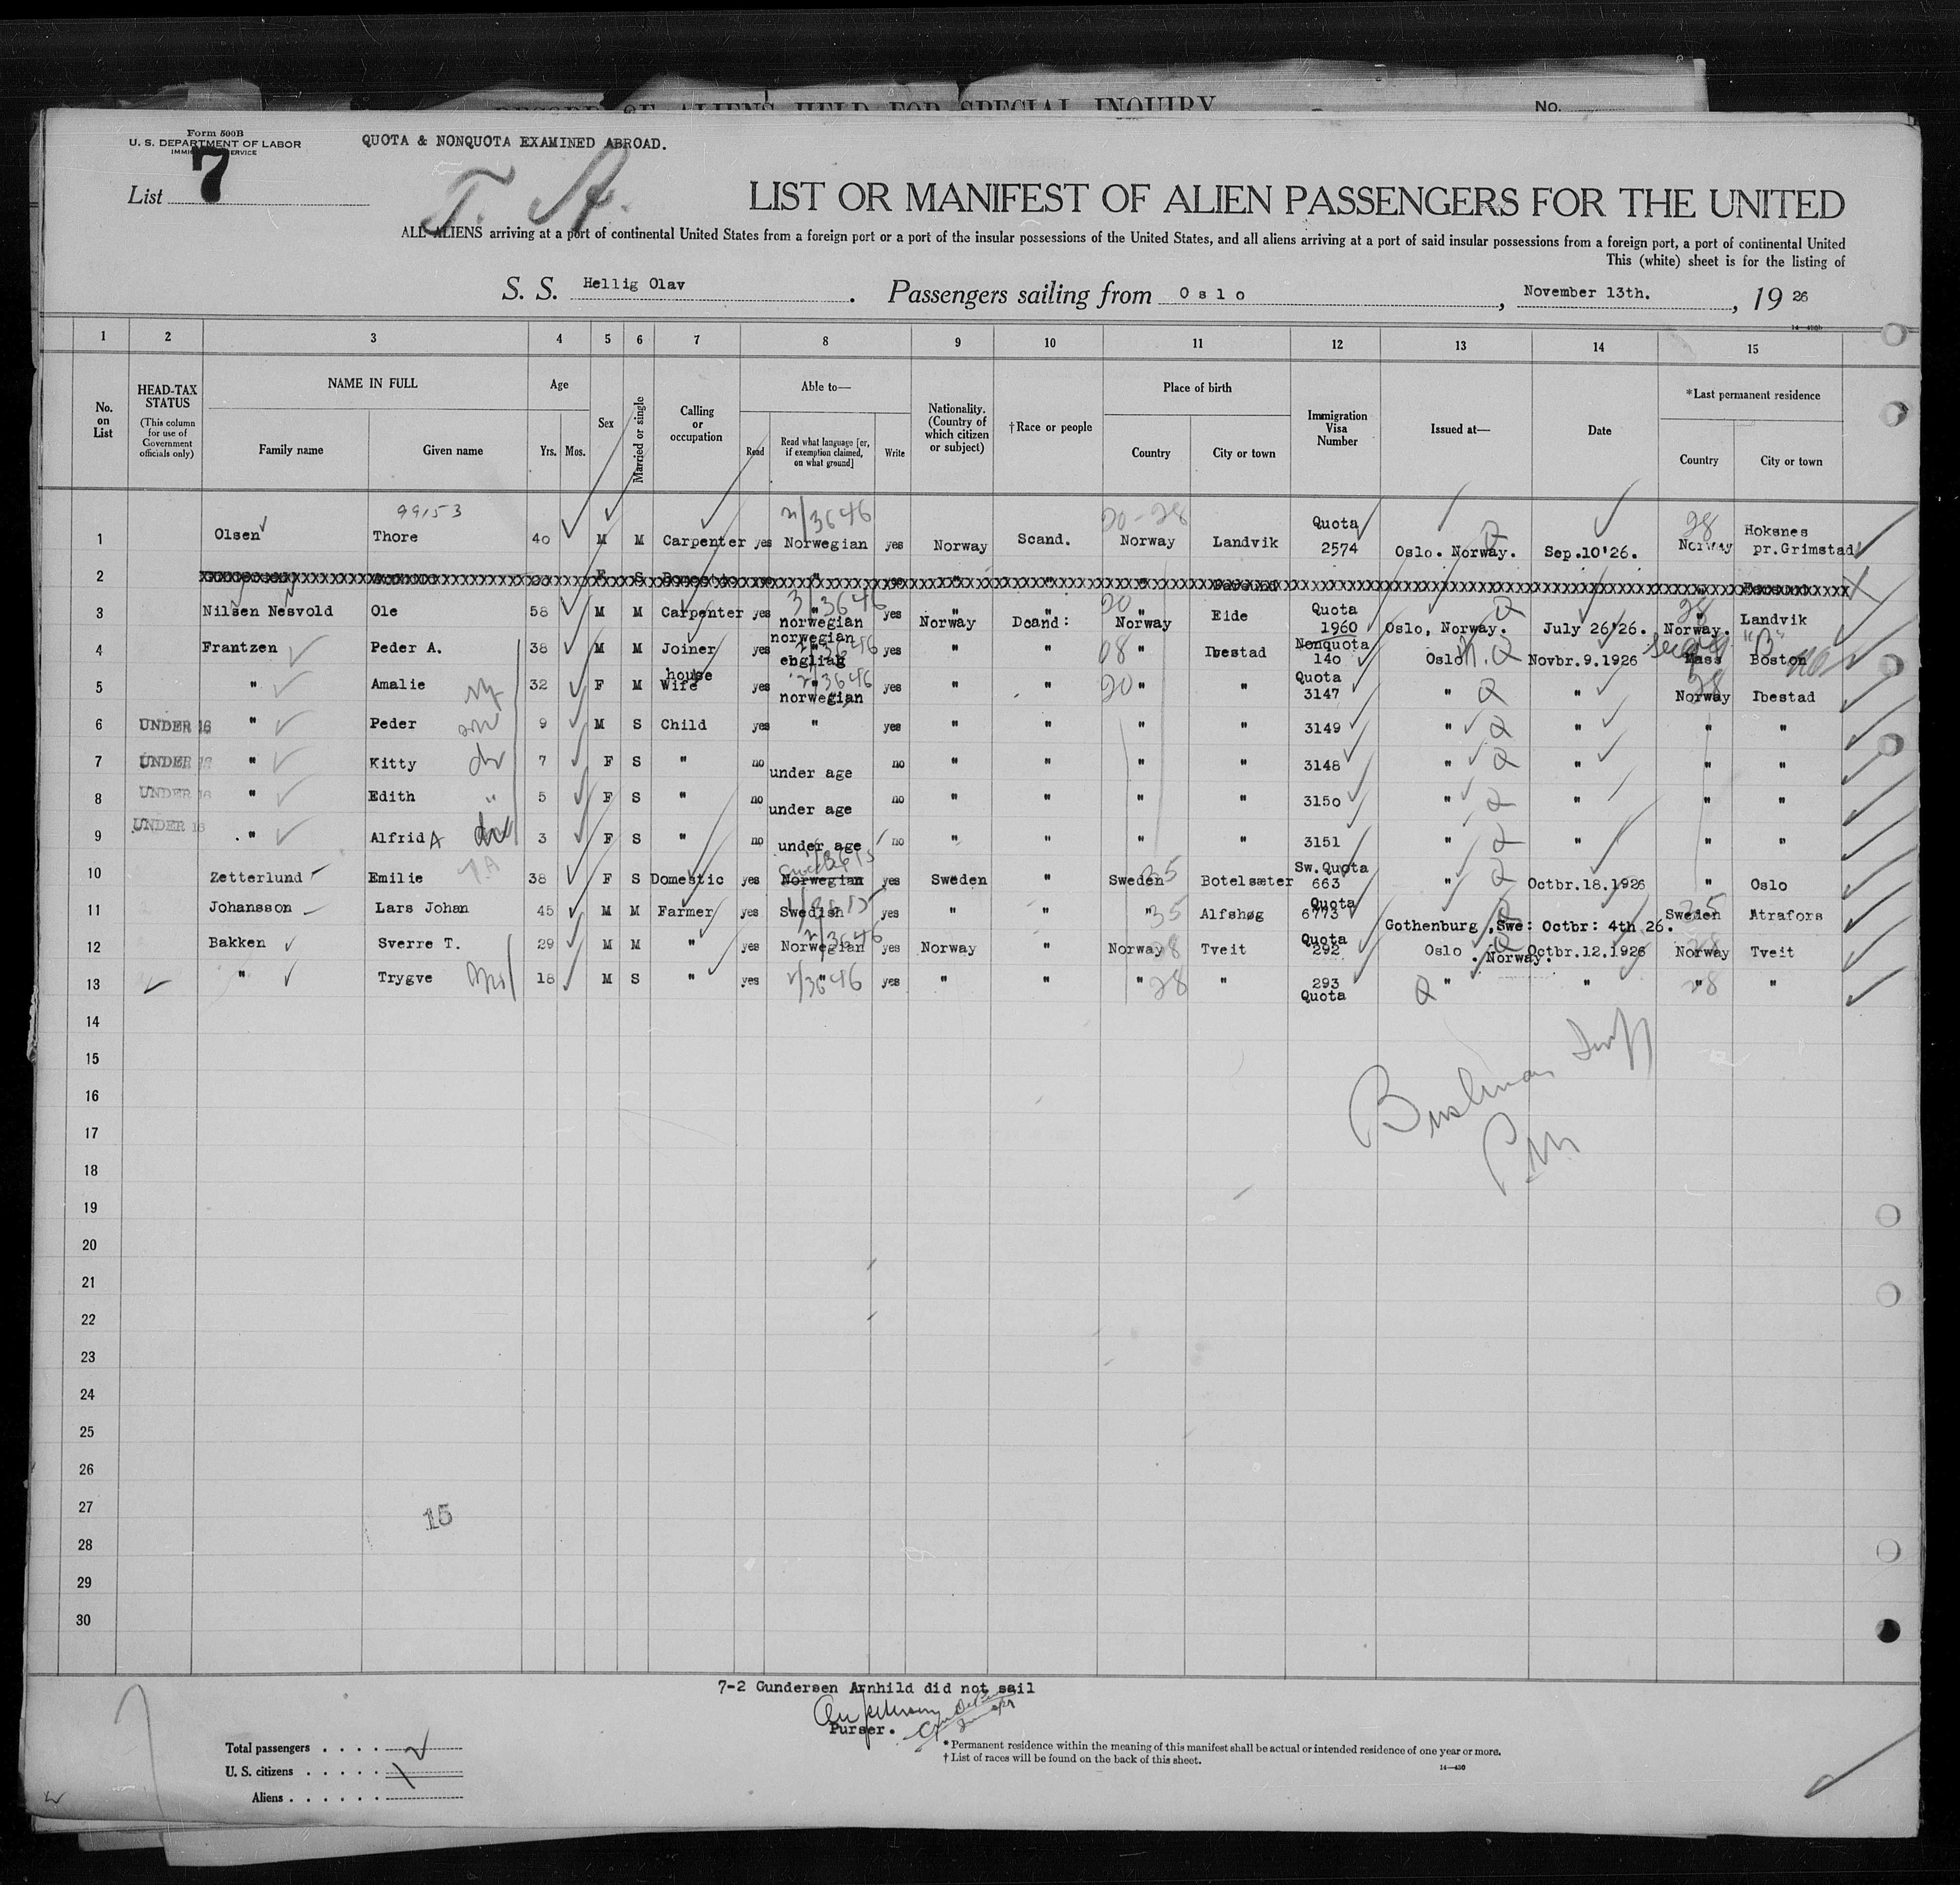 RECORD OF ALIENS HELD FOR SPECIAL INQUIRY No.
Form 500B
U. S. DEPARTMENT OF LABOR
QUOTA & NONQUOTA EXAMINED ABROAD.
List 7
T. A.
LIST OR MANIFEST OF ALIEN PASSENGERS FOR THE UNITED
ALL ALIENS arriving at a port of continental United States from a foreign port or a port of the insular possessions of the United States, and all aliens arriving at a port of said insular possessions from a foreign port, a port of continental United
This (white) sheet is for the listing of
S. S. Hellig Olav. Passengers sailing from Oslo, November 13th., 19 26
1 2 3 4 5 6 7 8 9 10 11 12 13 14 15
No. on List
HEAD-TAX STATUS (This column for use of Government officials only)
NAME IN FULL Family name Given name
Age Yrs. Mos.
Sex
Married or single
Calling or occupation
Able to— Read Read what language [or, if exemption claimed, on what ground] Write
Nationality. (Country of which citizen or subject)
†Race or people
Place of birth Country City or town
Immigration Visa Number
Issued at—
Date
*Last permanent residence Country City or town
99153
1 Olsen Thore 40 M M Carpenter yes 2/3646 Norwegian yes Norway Scand. 20-28 Norway Landvik Quota 2574 Oslo. Norway. Q Sep.10'26. 28 Norway Hoksnes pr.Grimstad
2
3 Nilsen Nesvold Ole 58 M M Carpenter yes " norwegian yes " Norway " Dcand: 20 " Norway Eide Quota 1960 Oslo, Norway. Q July 26'26. 28 " Norway. Landvik
4 Frantzen Peder A. 38 M M Joiner yes norwegian " english yes " " 08 " Ibestad Nonquota 140 Oslo N.Q Novbr.9.1926 Mass Boston
5 " Amalie 32 F M house Wife yes " 2/3646 norwegian yes " " 20 " " Quota 3147 " Q " 28 Norway Ibestad
6 UNDER 16 " Peder son 9 M S Child yes " yes " " " " 3149 " Q " " "
7 UNDER 16 " Kitty 7 F S " no under age no " " " " 3148 " Q " " "
8 UNDER 16 " Edith " 5 F S " no under age no " " " " 3150 " Q " " "
9 UNDER 16 " Alfrid A 3 F S " no under age no " " " " 3151 " Q " " "
10 Zetterlund Emilie 38 F S Domestic yes Norwegian yes Sweden " Sweden 35 Botelsæter Sw.Quota 663 " Q Octbr.18.1926 " Oslo
11 Johansson Lars Johan 45 M M Farmer yes Swedish yes " " " 35 Alfshøg Quota 6773 Gothenburg ,Swe: Octbr: 4th 26. Sweden 35 Atrafors
12 Bakken Sverre T. 29 M M " yes 2/3646 Norwegian yes Norway " Norway 28 Tveit Quota 292 Oslo . Norway. Q Octbr.12.1926 Norway 28 Tveit
13 " Trygve 18 M S " yes " 2/3646 yes " " " 28 " 293 Quota Q " " " 28 "
14
15
16
17
18
19
20
21
22
23
24
25
26
27
15
28
29
30
7-2 Gundersen Arnhild did not sail
Purser.
Total passengers
U. S. citizens
Aliens
* Permanent residence within the meaning of this manifest shall be actual or intended residence of one year or more.
† List of races will be found on the back of this sheet.
14—430